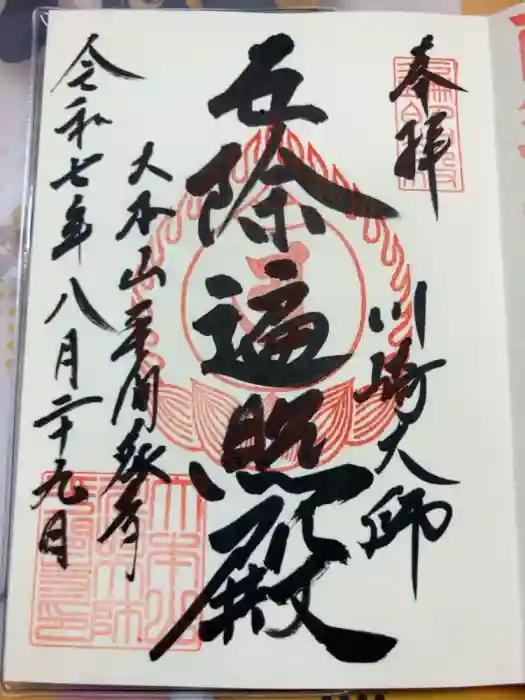 奉拝
川崎大師
厄除遍照殿
大本山平間寺
令和七年八月二十九日
大本山